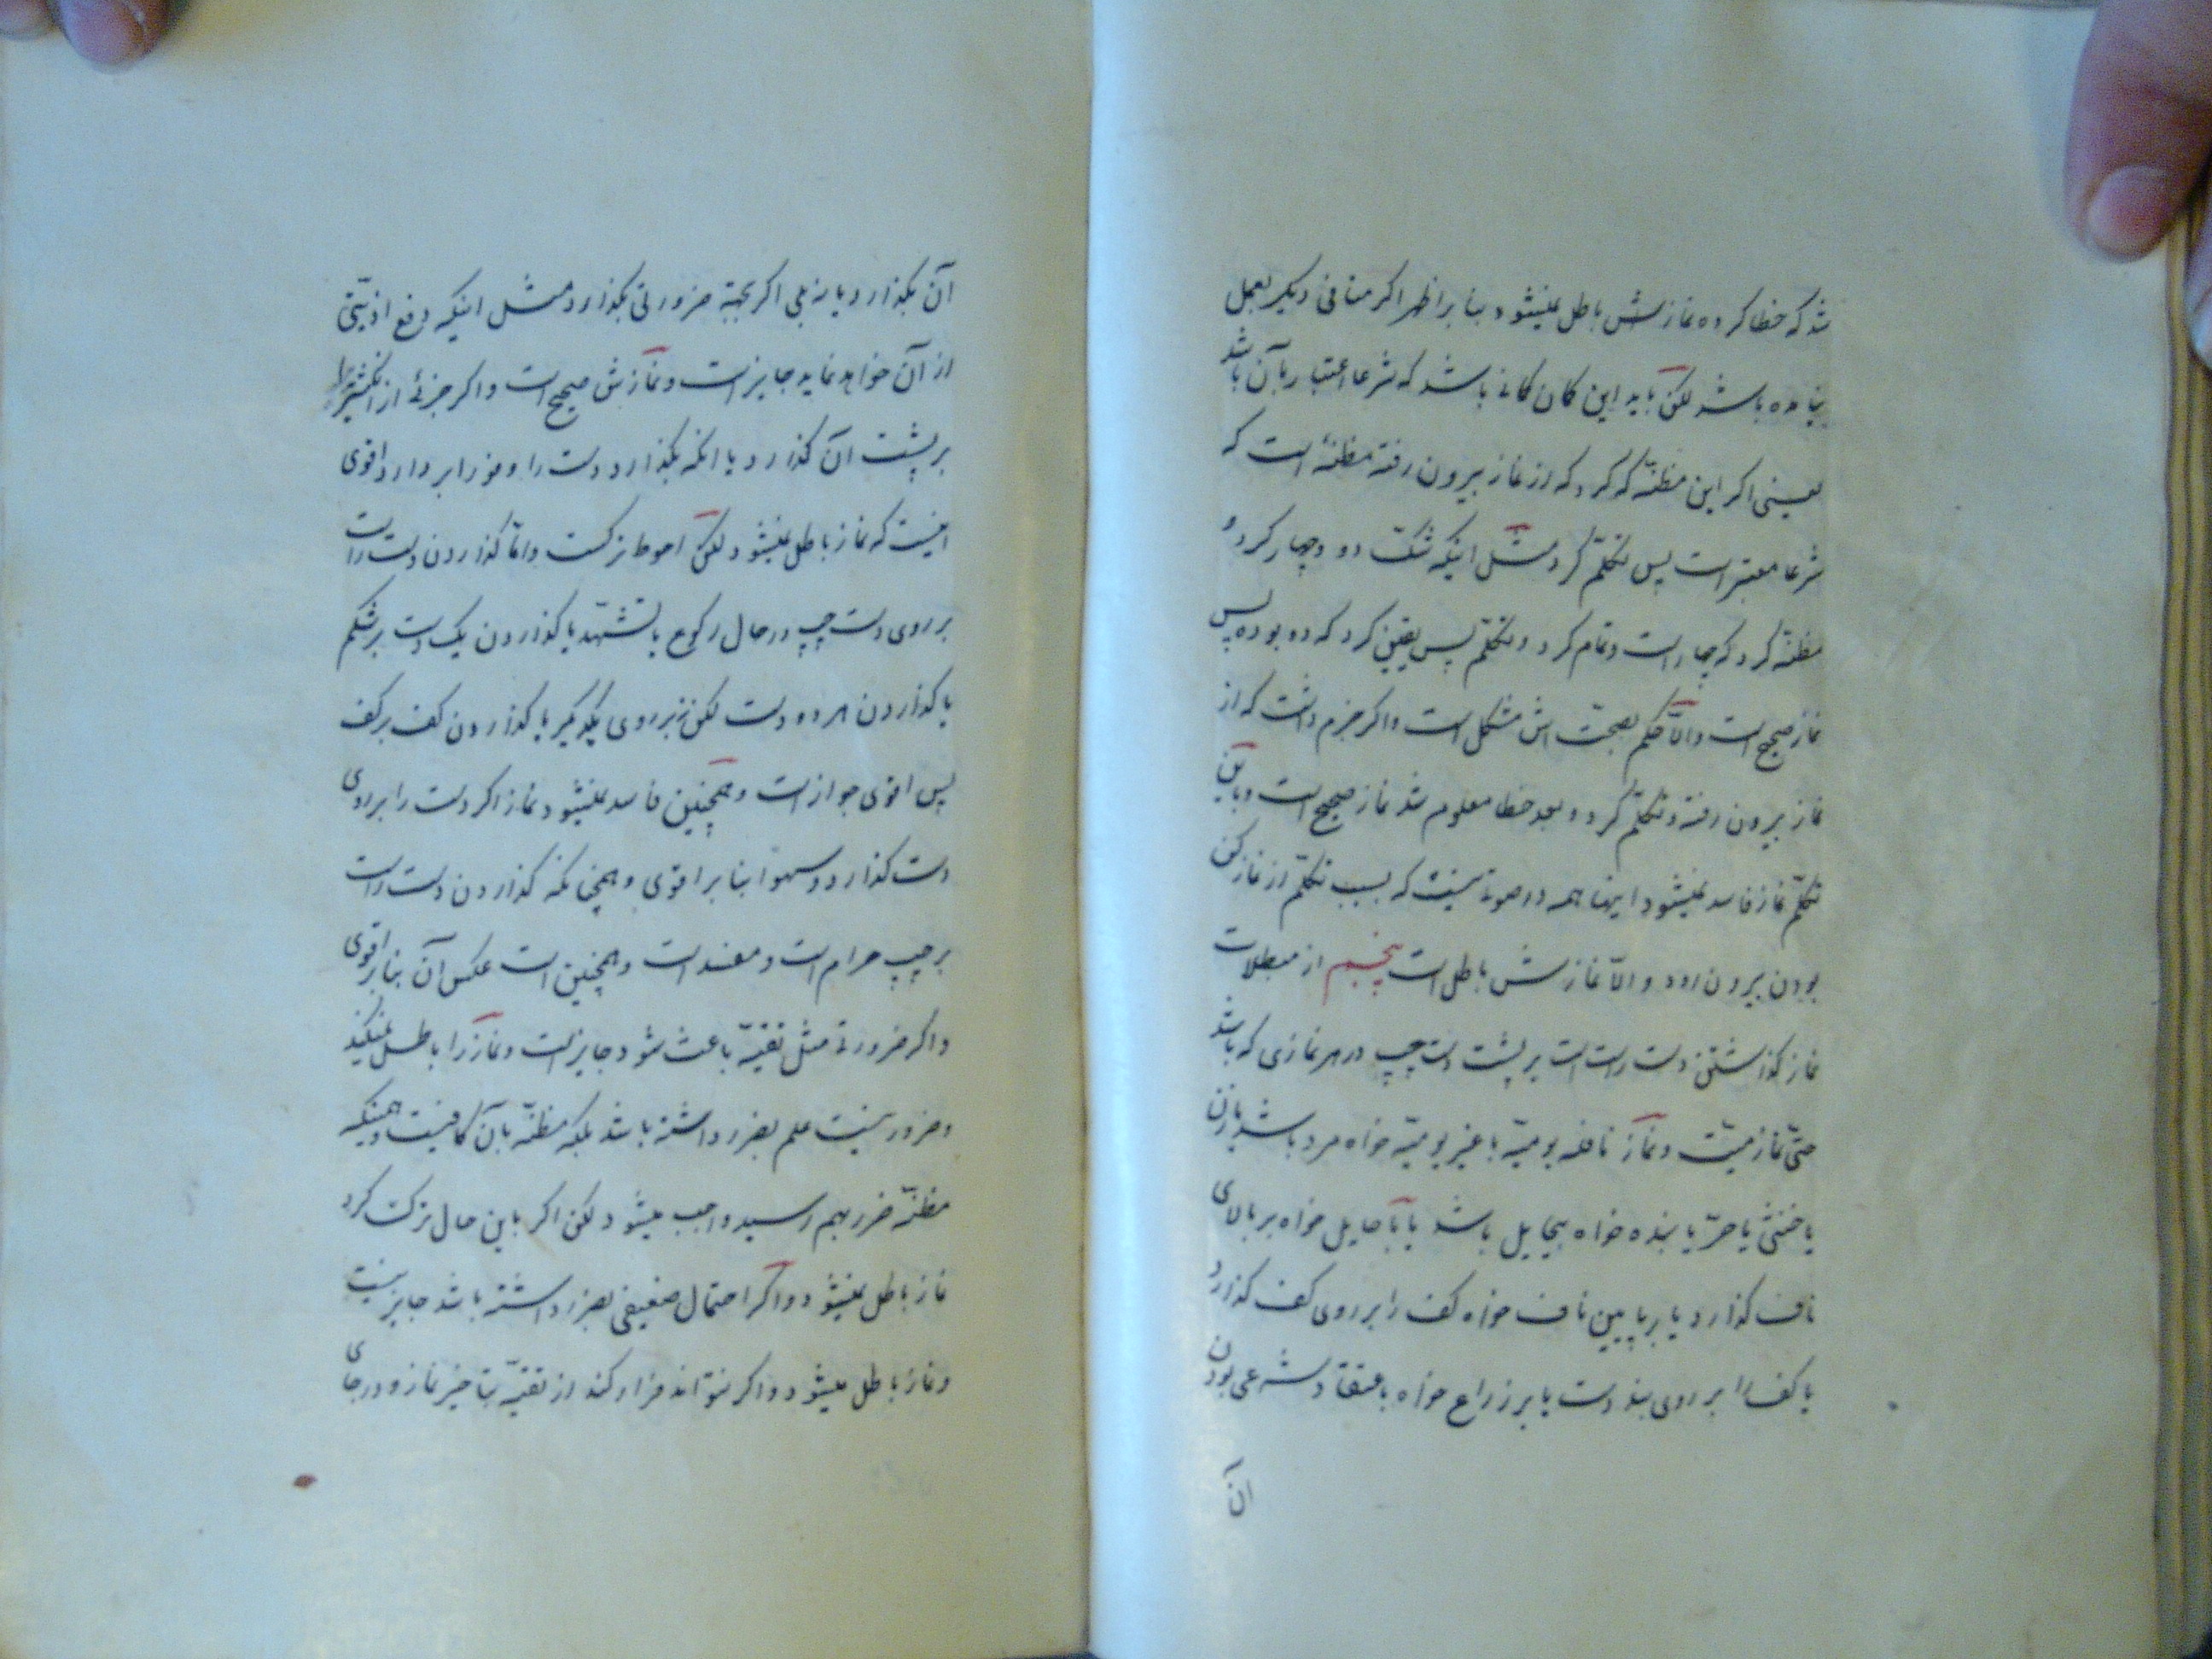 شد که خطا کرده نمازش باطل نمیشود بنا بر اظهر اگر منافی دیگر بعمل
نیامده باشد لکن باید این کمان کمانی باشد که شرعا اعتبار بآن باشد
یعنی اگر این مظنّه که کرد که از نماز بیرون رفته مظنّهٔ است که
شرعا معتبر است پس تکلّم کرد مثل اینکه شک دو و چهار کرد و
مظنّه کرد که چهار است و تمام کرد و تکلّم پس یقین کرد که دو بوده پس
نماز صحیح است و الّا حکم بصحّت اش مشکل است و اگر جزم داشت که از
نماز بیرون رفته و تکلّم کرد و بعد خطا معلوم شد نماز صحیح است و باین
تکلّم نماز فاسد نمیشود و اینها همه در صورتیست که بسبب تکلّم از نماز کن
بودن بیرون رود و الّا نمازش باطل است پنجم از مبطلات
نماز گذاشتن دست راست است بر پشت دست چپ در هر نمازی که باشد
حتّی نماز میّت و نماز نافله یومیّه یا غیر یومیّه خواه مرد باشد یا زن
یا خنثی یا حرّ یا بنده خواه بیحایل باشد یا با حایل خواه بر بالای
ناف گذارد یا بر پایین ناف خواه کف را بر روی کف گذارد
یا کف را بر روی بند دست یا بر زراع خواه باعتقاد شرعی بودن
آن
آن بگذارد یا نه بلی اگر بجهة ضرورتی بگذارد مثل اینکه دفع اذیّتی
از آن خواهد نماید جایز است و نمازش صحیح است و اگر جزئی از انگشتیرا
بر پشت آن گذارد یا آنکه بگذارد دست را و فورا بردارد اقوی
اینست که نماز باطل نمیشود لکن احوط ترکست و امّا گذاردن دست راست
بر روی دست چپ در حال رکوع یا تشهّد یا گذاردن یک دست بر شکم
یا گذاردن هر دو دست لکن نه بر روی یکدیگر یا گذاردن کف بر کف
پس اقوی جواز است و همچنین فاسد نمیشود نماز اگر دست را بر روی
دست گذارد سهوا بنا بر اقوی و همچنانکه گذاردن دست راست
بر چپ حرام است و مفسد است و همچنین است عکس آن بنا بر اقوی
و اگر ضرورتی مثل تقیّه باعث شود جایز است و نماز را باطل نمیکند
و ضرور نیست علم بضرر داشته باشد بلکه مظنّه بآن کافیست و همینکه
مظنّه ضرر بهم رسید واجب میشود لکن اگر باین حال ترک کرد
نماز باطل نمیشود و اگر احتمال ضعیفی بضرر داشته باشد جایز نیست
و نماز باطل میشود و اگر بتواند فرار کند از تقیّه بتاخیر نماز و در جای